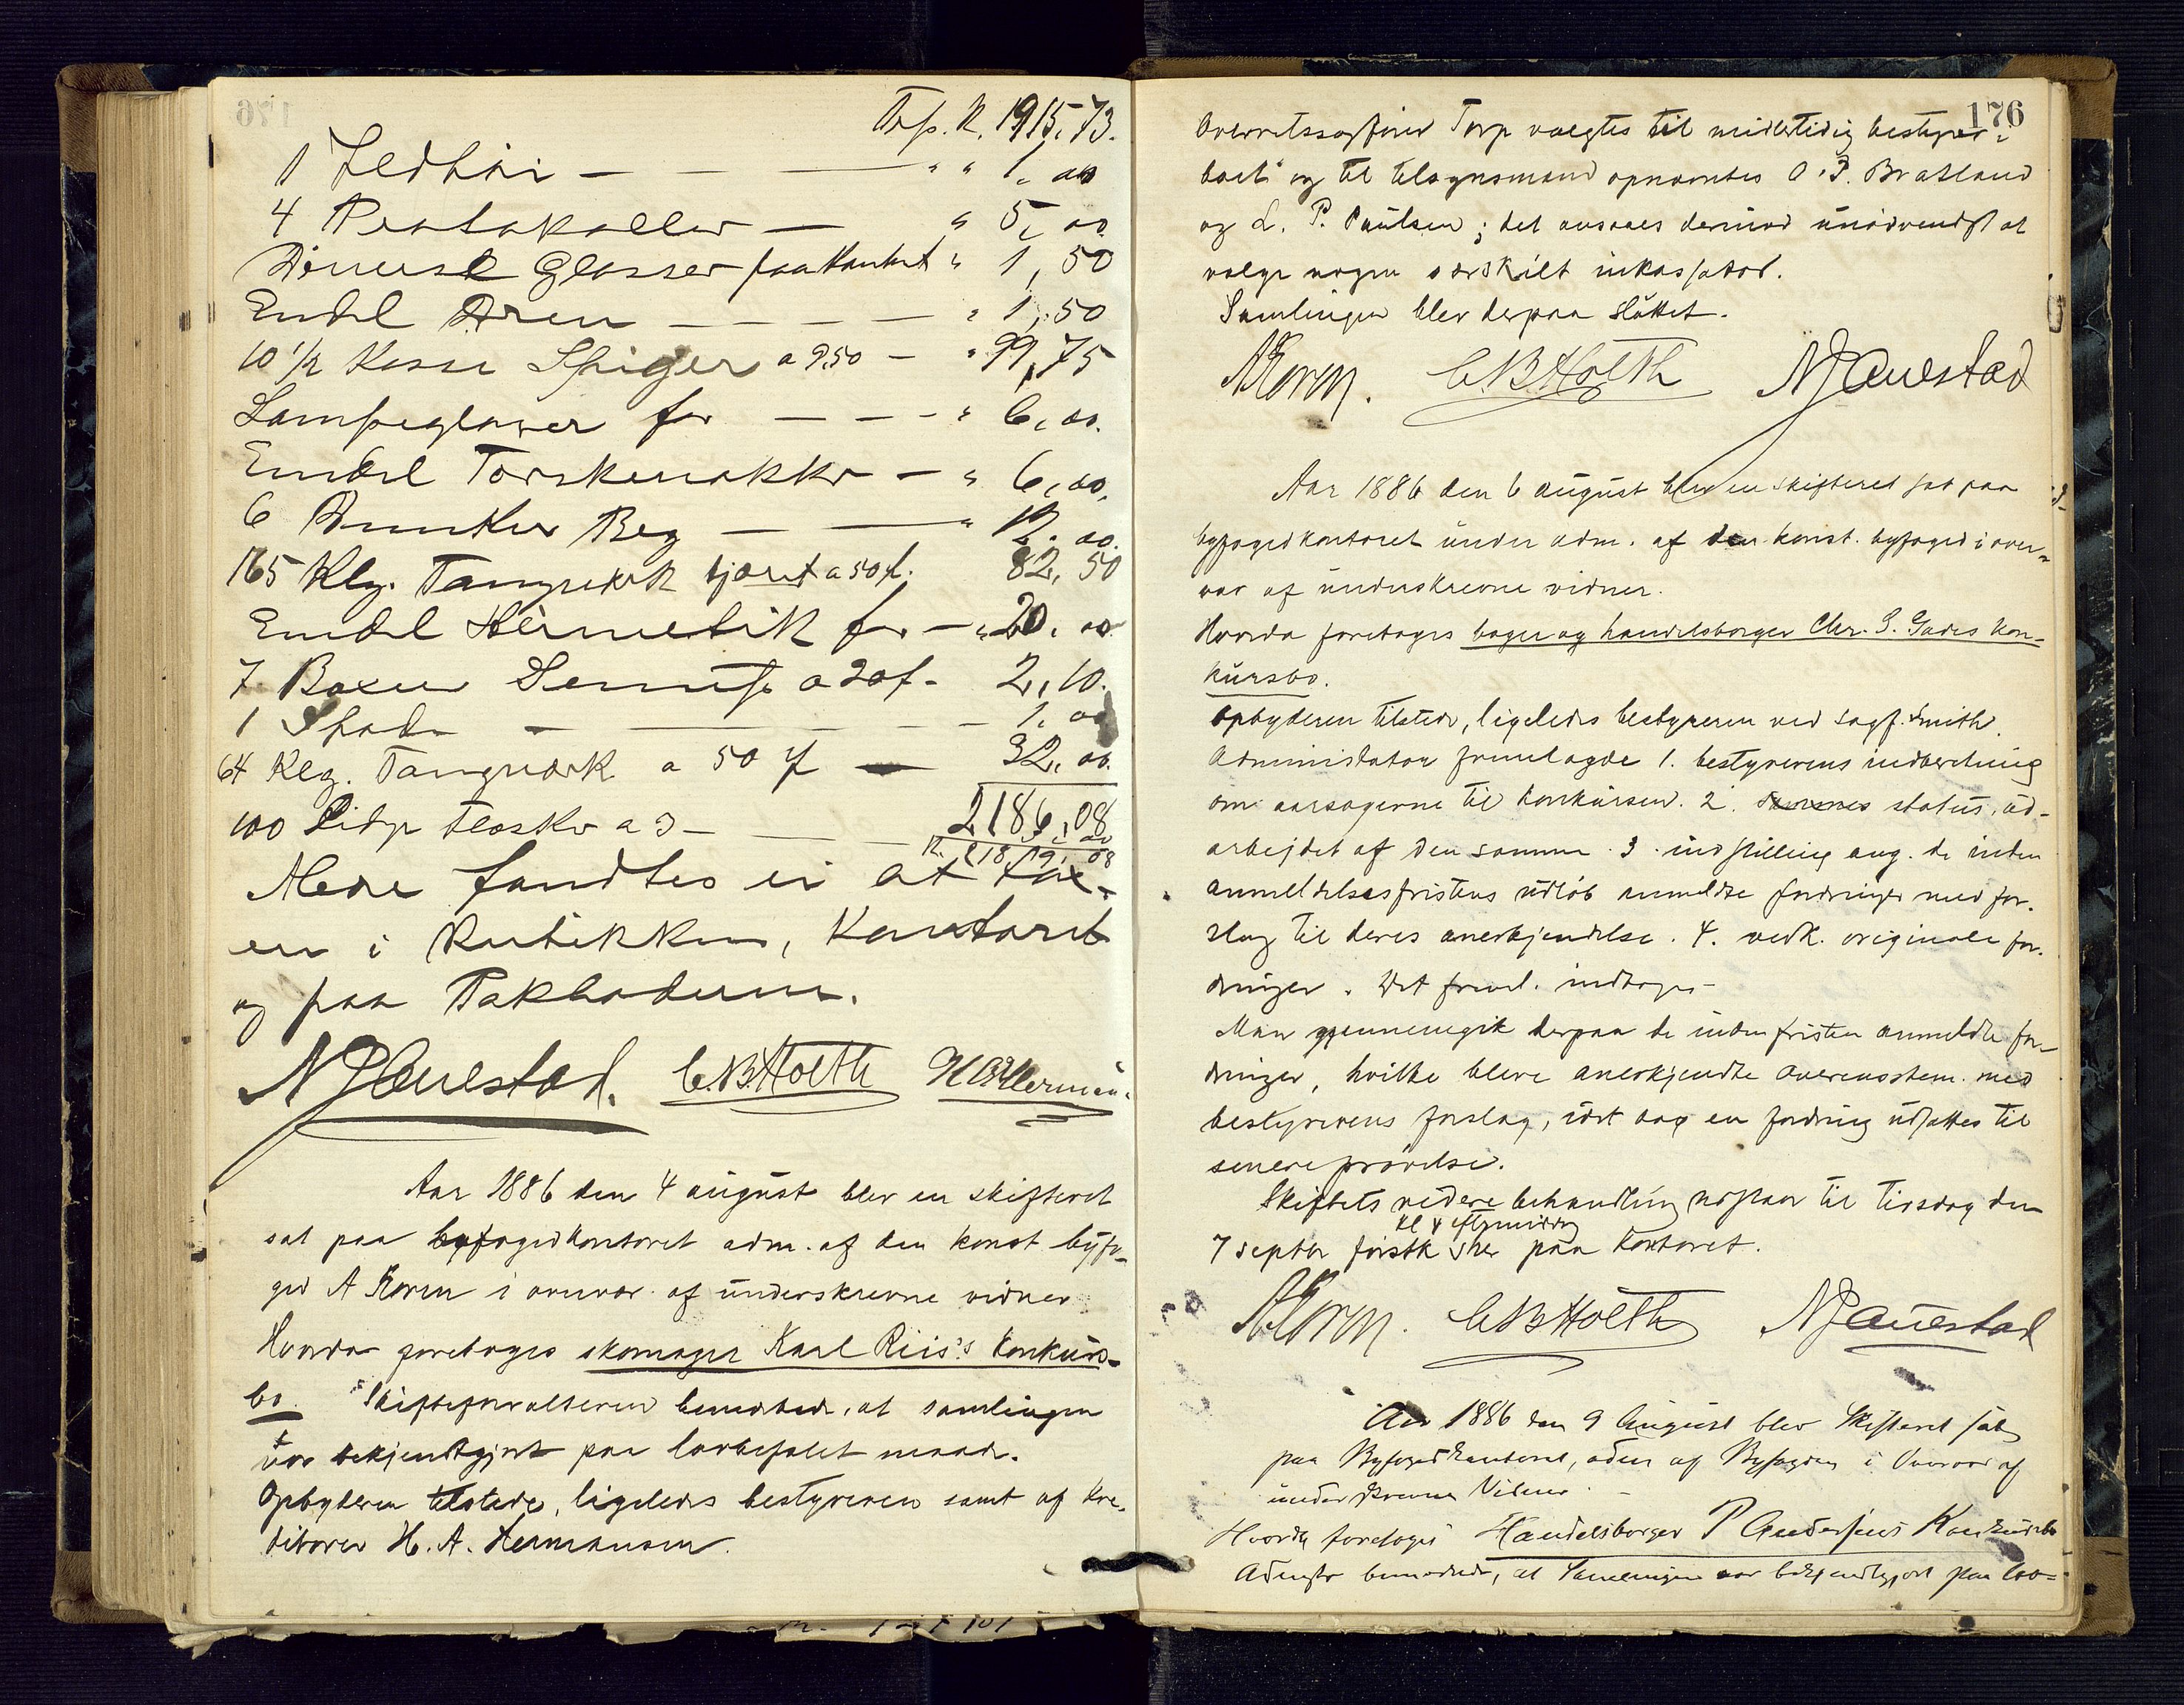 Trsp. K. 1915,73.
1 " " 1, 00
4 Protokoller — " 5, 00
Diverse Glasser paa Kontort " 1,50
Endel — " 1,50
10 1/2 Kasse Spiger a 9.50 — " 99,75
Lampeglasser for — " 6,00.
Endel Torskenakker — " 6,00.
6 Dunker Beg — " 12.00.
165 Klg. Tangverk tjæret a 50 f. 82,50
Endel Hermetik for — " 20,00
7 Boxer Sennep a 30 f. 2,10.
1 Spade — 1,00
64 Klg. Tangverk a 50 f — 32,00.
2186,08
100 Flasker a 3 —
K. 2189,08
Mere fandtes ei at tax-
er i Butikken, Kontoret
og paa Pakboderne.
N J Auestad. C.B. Holth H A Hermans
Aar 1886 den 4 august blev en skifteret
sat paa byfogedkontoret adm. af den konst byfo-
ged A Koren i overvær af underskrevne vidner.
Hvorda foretoges skomager Karl Riis's konkurs-
bo. Skifteforvalteren bemærkede, at samlingen
var bekjendtgjort paa lovbefalet maade.
Opbyderen tilstede, ligeledes bestyreren samt af kre-
ditorer H. A. Hermansen.
176
Overretssagfører Torp valgtes til midlertidig bestyrer i
boet og til tilsynsmænd opnævntes O. P. Bratland
og L. P. Paulsen; det ansaaes derimod unødvendigt at
vælge nogen særskilt inkassator.
Samlingen blev derpaa sluttet.
A Koren. C B Holth N J Auestad
Aar 1886 den 6 august blev en skifteret sat paa
byfogedkontoret under adm. af den konst. byfoged i over-
vær af underskrevne vidner.
Hvorda foretoges bager og handelsborger Chr. S. Gades kon-
kursbo.
Opbyderen tilstede, ligeledes bestyreren ved sagf. Smith.
Administrator fremlagde 1. bestyrerens indberetning
om aarsagerne til konkursen. 2. status, ud-
arbeidet af den samme. 3. indstilling ang. de inden
anmeldelsesfristens udløb anmeldte fordringer med for-
slag til deres anerkjendelse. 4. vedk. originale for-
dringer. Det freml. indtages —
Man gjennemgik derpaa de inden fristen anmeldte for-
dringer, hvilke bleve anerkjendte overensstem. med
bestyrerens forslag, idet dog en fordring udsattes til
senere prøvelse.
Skiftets videre behandling udstaar til tirsdag den
kl 4 eftermiddag
7 septbr førstk her paa kontoret.
A Koren. C B Holth N J Auestad
Aar 1886 den 9 August blev Skifteret sat
paa Byfogedkontoret, adm af Byfogden i Overvær af
underskrevne Vidner. —
Hvorda foretoges Handelsborger P Andersens Konkursbo
Admstr bemærkede, at Samlingen var bekjendtgjort paa lov=